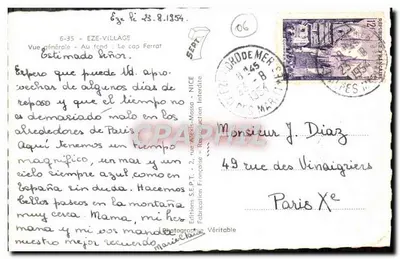 Eze le 23.8.1954.
06
6-95 - EZE-VILLAGE
Vue générale - Au fond : Le cap Ferrat
Estimado Señor.
Espero que puede Ud. apro-
vechar de algunos dias de
reposo y que el tiempo no
es demasiado malo en los
alrededores de Paris.
Aquí tenemos un tiempo
magnífico, un mar y un
cielo siempre azul, como en
España sin duda. Hacemos
bellos paseos en la montaña
muy cerca. Mama, mi her
mana y mi vos mandan
nuestro mejor recuerdo
Editions S.E.P.T. - NICE
Fabrication Française - Reproduction Interdite
Photographie Véritable
SEPT
BORD DE MER
1954
12F
Monsieur J. Diaz
49 rue des Vinaigriers
Paris Xe
CARTESPOSTALES